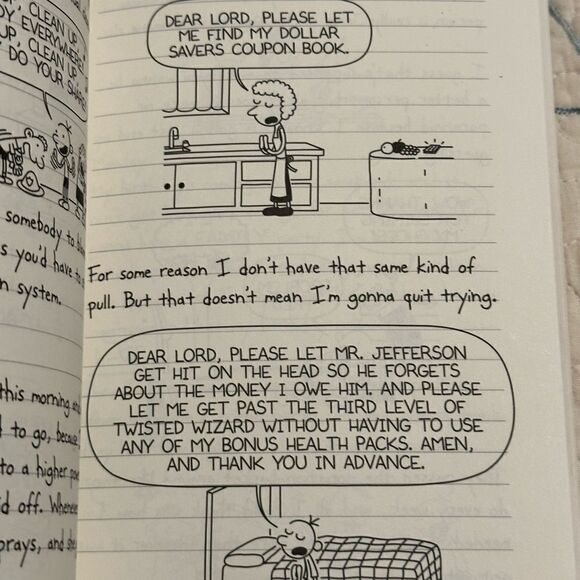 CLEAN UP
EVERYWHERE
UP, CLEAN UP
DO YOUR SHARE
somebody to
s you'd have to
n system.
this morning
to go, because
to a higher
d off. Whenever
prays, and she
DEAR LORD, PLEASE LET
ME FIND MY DOLLAR
SAVERS COUPON BOOK.
For some reason I don't have that same kind of
pull. But that doesn't mean I'm gonna quit trying.
DEAR LORD, PLEASE LET MR. JEFFERSON
GET HIT ON THE HEAD SO HE FORGETS
ABOUT THE MONEY I OWE HIM. AND PLEASE
LET ME GET PAST THE THIRD LEVEL OF
TWISTED WIZARD WITHOUT HAVING TO USE
ANY OF MY BONUS HEALTH PACKS. AMEN,
AND THANK YOU IN ADVANCE.